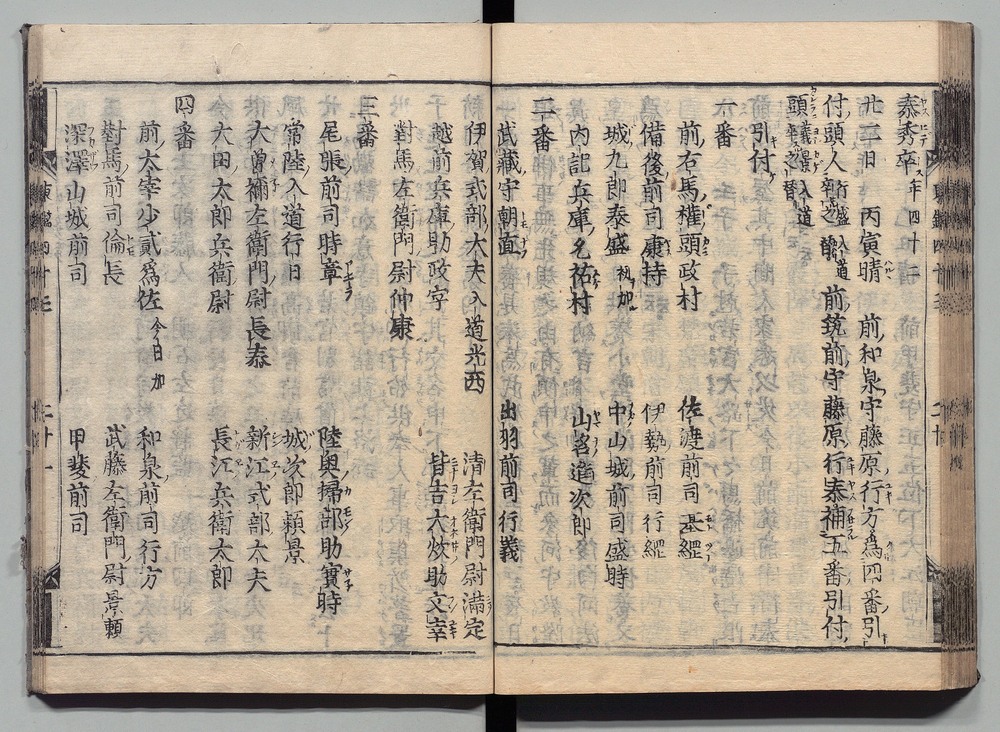 泰秀卒年四十二
廿三日 丙寅晴 前和泉守藤原行方爲四番引
付頭人 前筑前守藤原行泰補五番引付
頭
引付
六番
前右馬權頭政村 佐渡前司基綱
備後前司康持 伊勢前司行綱
城九郎泰盛 初加 中山城前司盛時
内記兵庫允祐村 山名進次郎
二番
武藏守朝直 出羽前司行義
伊賀式部大夫入道光西 清左衛門尉滿定
越前兵庫助政宗 皆吉大炊助文幸
對馬左衛門尉仲康
三番
尾張前司時章 陸奥掃部助實時
常陸入道行日 城次郎頼景
大曾禰左衛門尉長泰 新江式部大夫
大田太郎兵衛尉 長江兵衛太郎
四番
前太宰少貳爲佐 今日加 和泉前司行方
對馬前司倫長 武藤左衛門尉景頼
深澤山城前司 甲斐前司